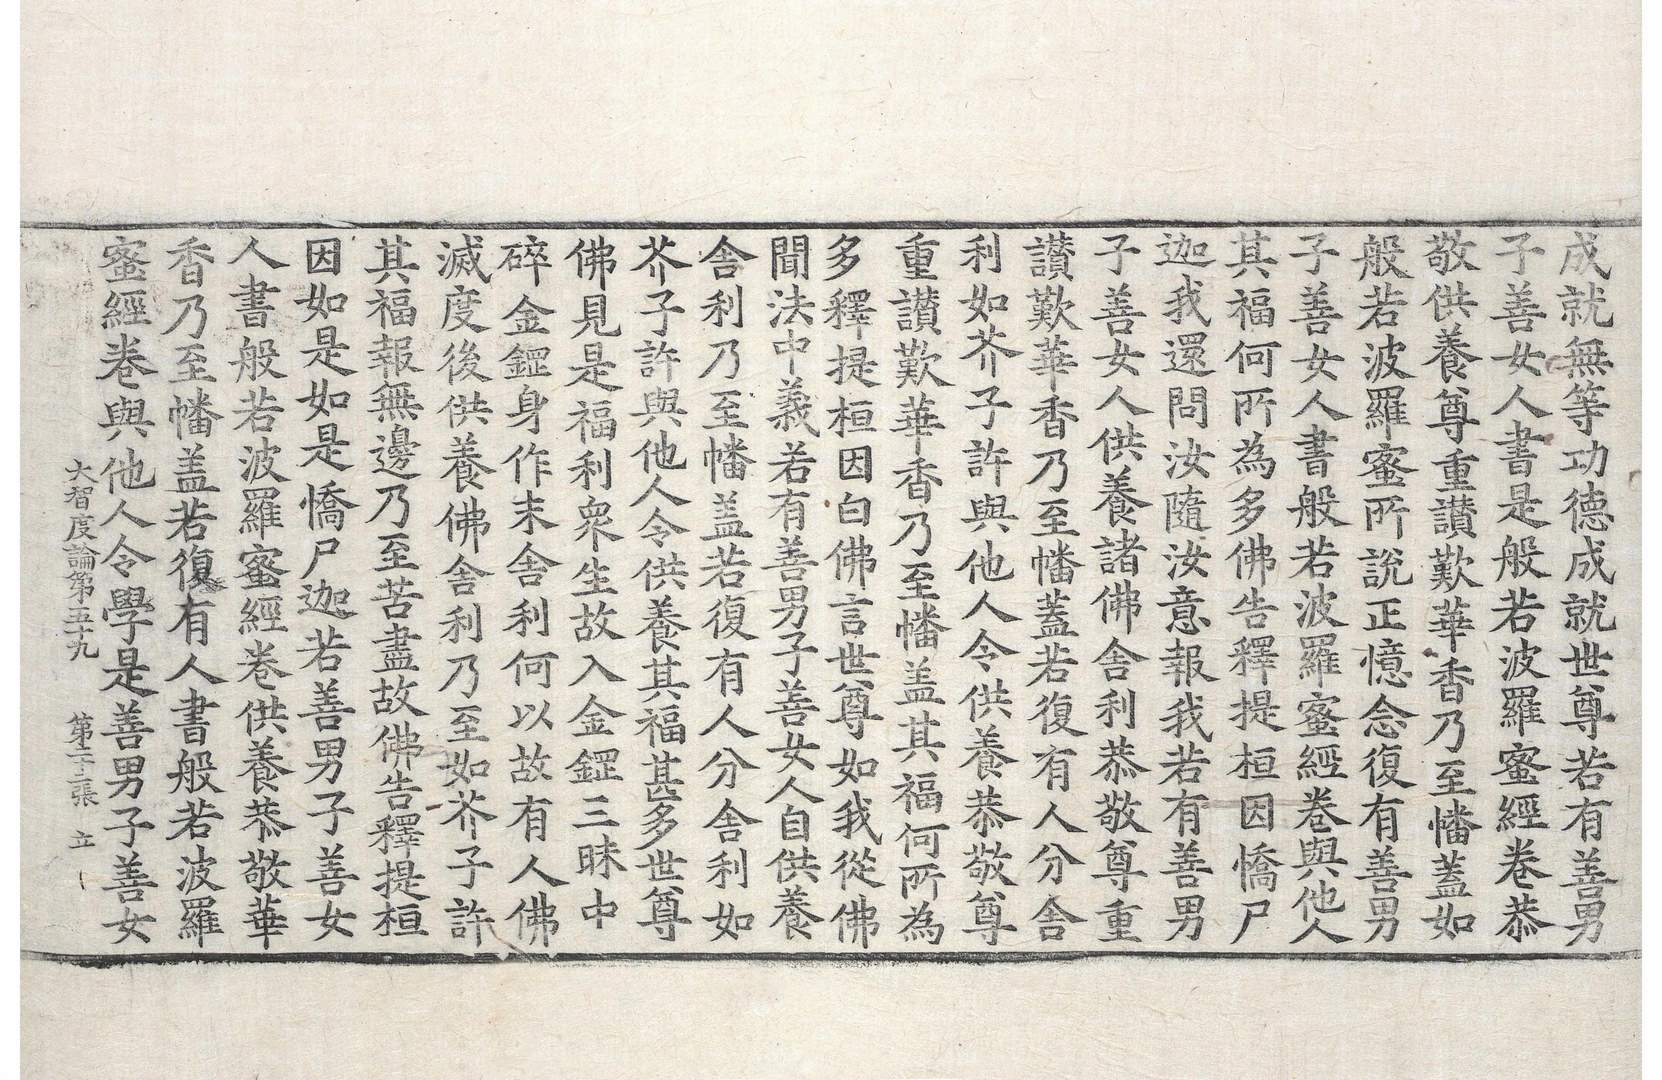 成就無等等功德成就世尊若有善男
子善女人書是般若波羅蜜經卷恭
敬供養尊重讃歎華香乃至幡蓋如
般若波羅蜜所說正憶念復有善男
子善女人書般若波羅蜜經卷與他人
其福何所為多佛告釋提桓因憍尸
迦我還問汝隨汝意報我若有善男
子善女人供養諸佛舍利恭敬尊重
讃歎華香乃至幡蓋若復有人分舍
利如芥子許與他人令供養恭敬尊
重讃歎華香乃至幡盖其福何所為
多釋提桓因白佛言世尊如我從佛
聞法中義若有善男子善女人自供養
舍利乃至幡盖若復有人分舍利如
芥子許與他人令供養其福甚多世尊
佛見是福利衆生故入金鋞三昧中
碎金鋞身作末舍利何以故有人佛
滅度後供養佛舍利乃至如芥子許
其福報無邊乃至苦盡故佛告釋提桓
因如是如是憍尸迦若善男子善女
人書般若波羅蜜經卷供養恭敬華
香乃至幡盖若復有人書般若波羅
蜜經卷與他人令學是善男子善女
大智度論第五十九 第二十張 立